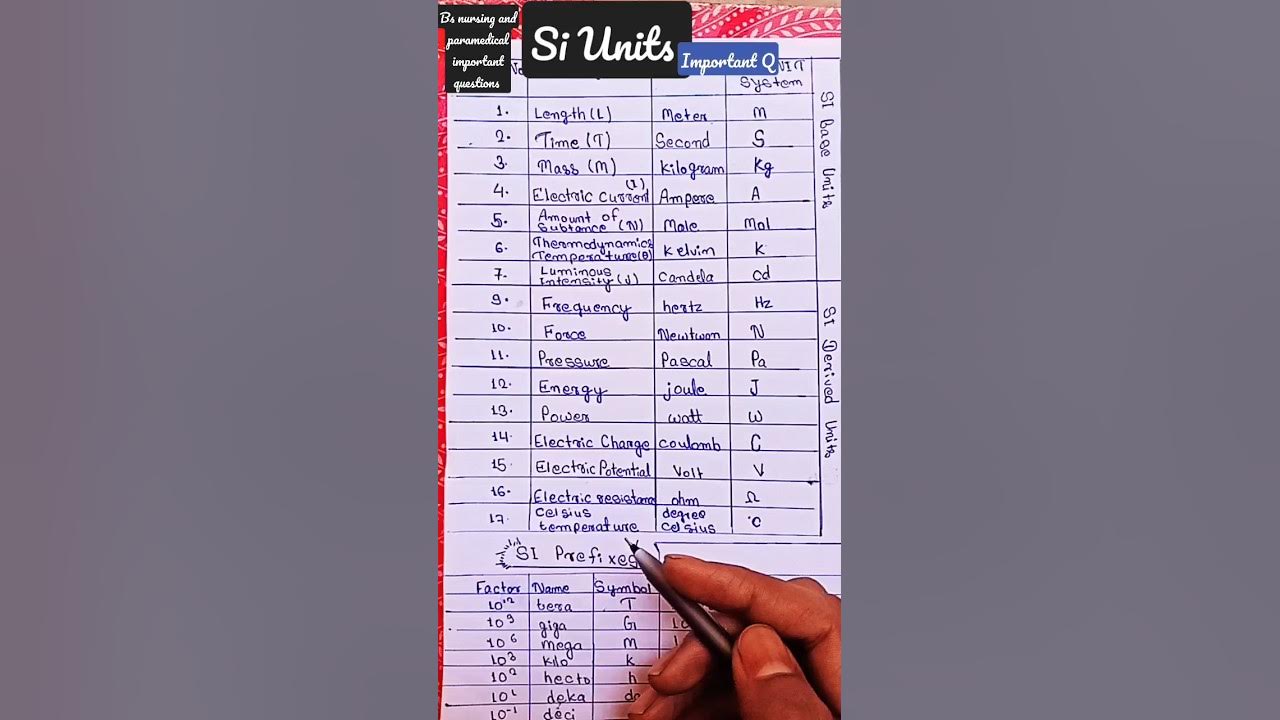 Bs nursing and
paramedical
important
questions
Si Units
Important Q
No
System
SI Base Units
1. Length (L) Meter M
2. Time (T) Second S
3. Mass (M) Kilogram Kg
4. Electric Current (I) Ampere A
5. Amount of
Subtance (N) Mole Mol
6. Thermodynamics
Temperature(θ) Kelvin K
7. Luminous
Intensity (J) Candela cd
SI Derived Units
9. Frequency hertz Hz
10. Force Newtwon N
11. Pressure Pascal Pa
12. Energy joule J
13. Power watt W
14. Electric Charge coulomb C
15. Electric Potential Volt V
16. Electric resistance ohm Ω
17. Celsius degree
temperature celsius °C
SI Prefixes
Factor Name Symbol
10¹² tera T
10⁹ giga G
10⁶ mega m
10³ kilo k
10² hecto h
10¹ deka da
10⁻¹ déci